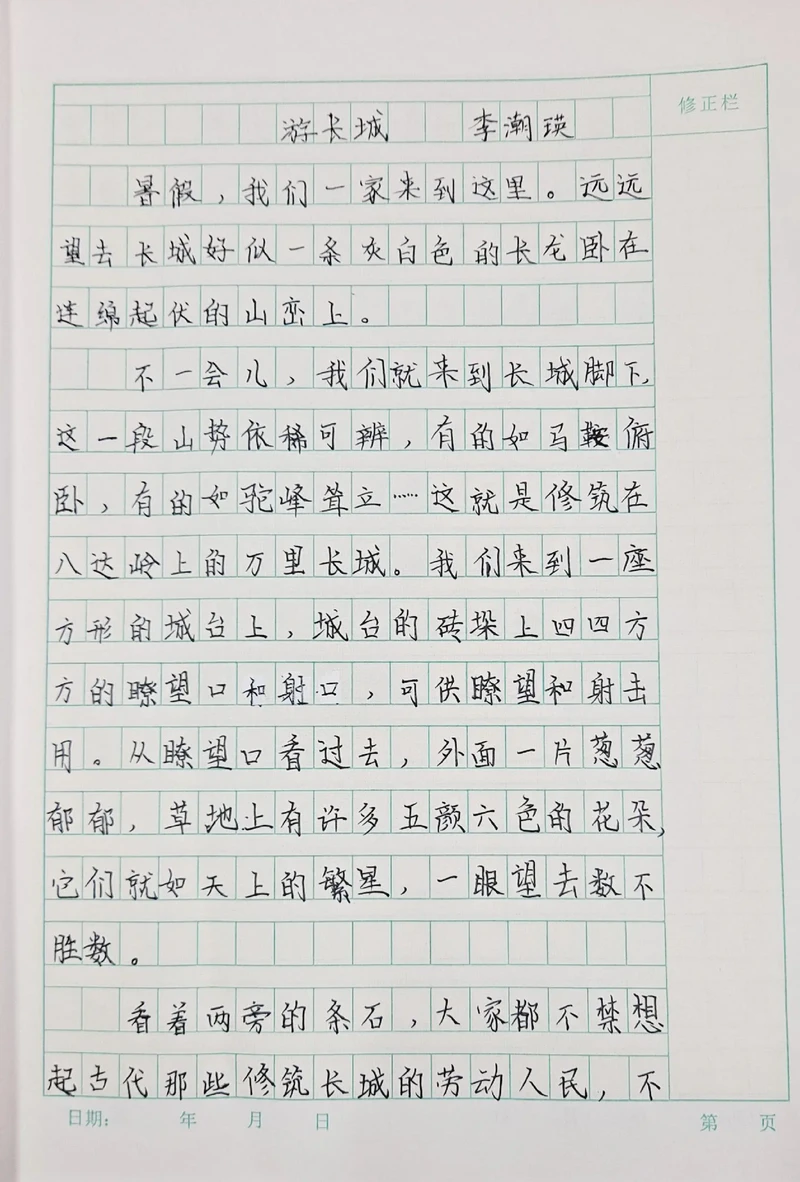 修正栏
游长城 李潮瑛
暑假，我们一家来到这里。远远
望去长城好似一条灰白色的长龙卧在
连绵起伏的山峦上。
不一会儿，我们就来到长城脚下，
这一段山势依稀可辨，有的如马鞍俯
卧，有的如驼峰耸立……这就是修筑在
八达岭上的万里长城。我们来到一座
方形的城台上，城台的砖垛上四四方
方的瞭望口和射口，可供瞭望和射击
用。从瞭望口看过去，外面一片葱葱
郁郁，草地上有许多五颜六色的花朵，
它们就如天上的繁星，一眼望去数不
胜数。
看着两旁的条石，大家都不禁想
起古代那些修筑长城的劳动人民，不
日期： 年 月 日 第 页